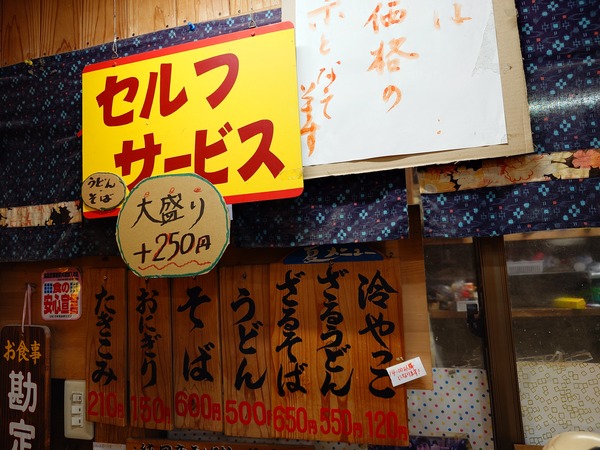 は
価格の
示となって
います
セルフ
サービス
うどん
そば
大盛り
+250円
食の
安心宣言
お食事
勘定
冷やっこ
120円
ざるうどん
550円
ざるそば
650円
うどん
500円
そば
600円
おにぎり
150円
たきこみ
210円